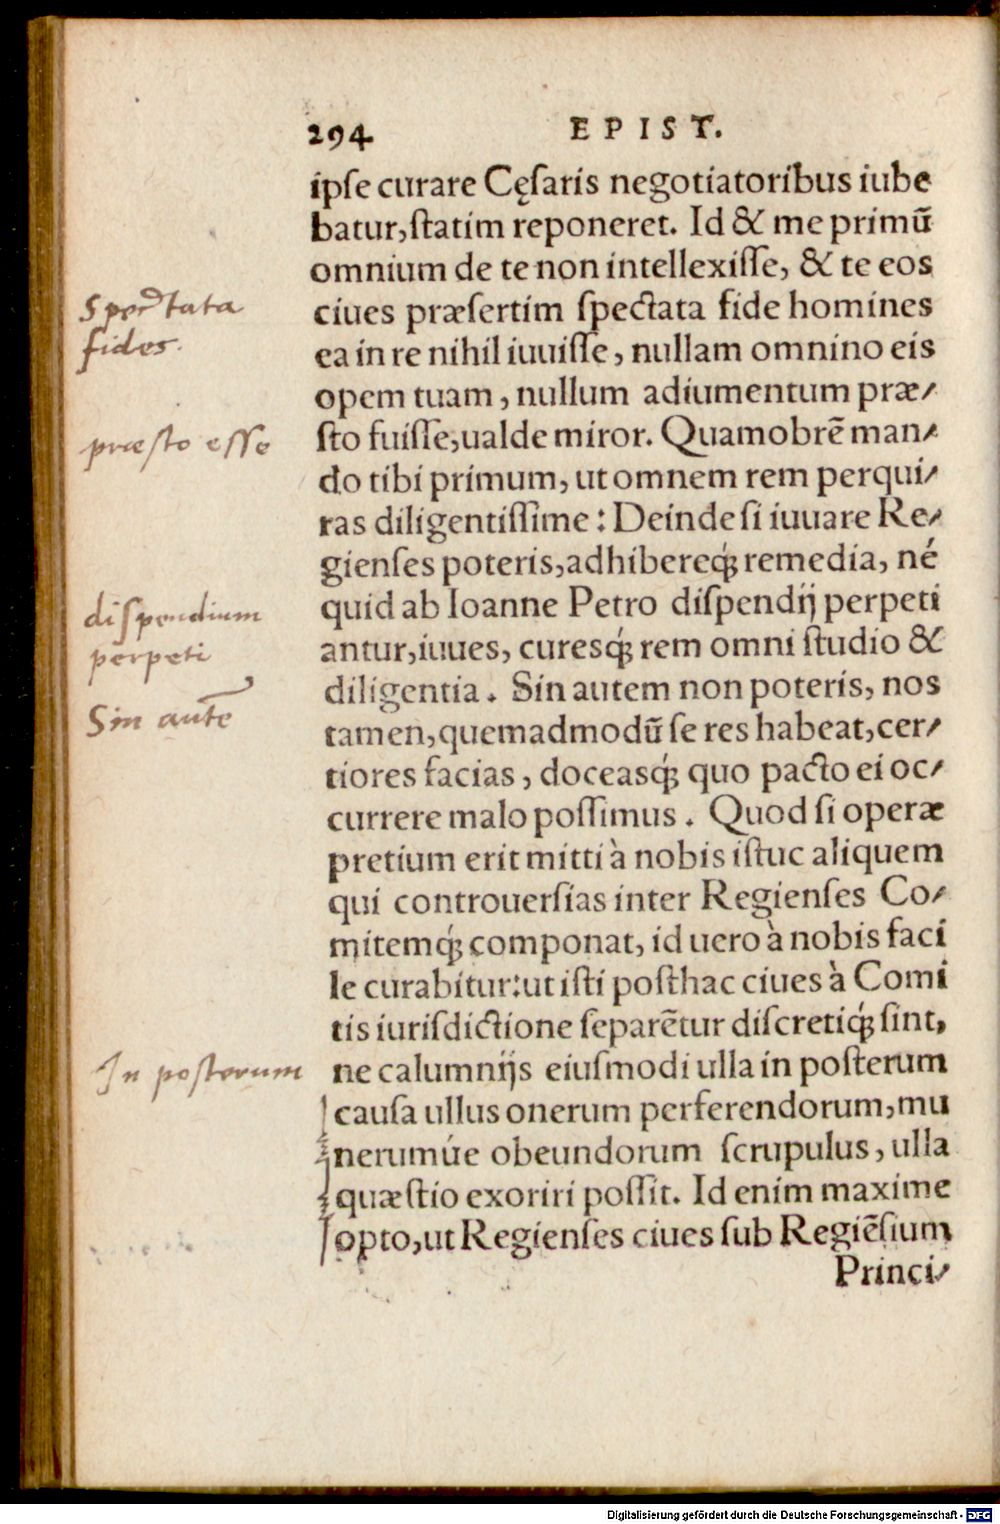 294 EPIST.
ipse curare Cęsaris negotiatoribus iube
batur, statim reponeret. Id & me primũ
omnium de te non intellexisse, & te eos
ciues præsertim spectata fide homines
ea in re nihil iuuisse, nullam omnino eis
opem tuam, nullum adiumentum præ-
sto fuisse, ualde miror. Quamobrẽ man-
do tibi primum, ut omnem rem perqui-
ras diligentissime: Deinde si iuuare Re-
gienses poteris, adhibereq́; remedia, né
quid ab Ioanne Petro dispendij perpeti
antur, iuues, curesq́; rem omni studio &
diligentia. Sin autem non poteris, nos
tamen, quemadmodũ se res habeat, cer-
tiores facias, doceasq́; quo pacto ei oc-
currere malo possimus. Quod si operæ
pretium erit mitti à nobis istuc aliquem
qui controuersias inter Regienses Co-
mitemq́; componat, id uero à nobis faci
le curabitur: ut isti posthac ciues à Comi
tis iurisdictione separẽtur discretiq́; sint,
ne calumnijs eiusmodi ulla in posterum
causa ullus onerum perferendorum, mu
nerumúe obeundorum scrupulus, ulla
quæstio exoriri possit. Id enim maxime
opto, ut Regienses ciues sub Regiẽsium
Princi-
Spectata
fides.
præsto esse
dispendium
perpeti
Sin autẽ
In posterum
Digitalisierung gefördert durch die Deutsche Forschungsgemeinschaft - DFG